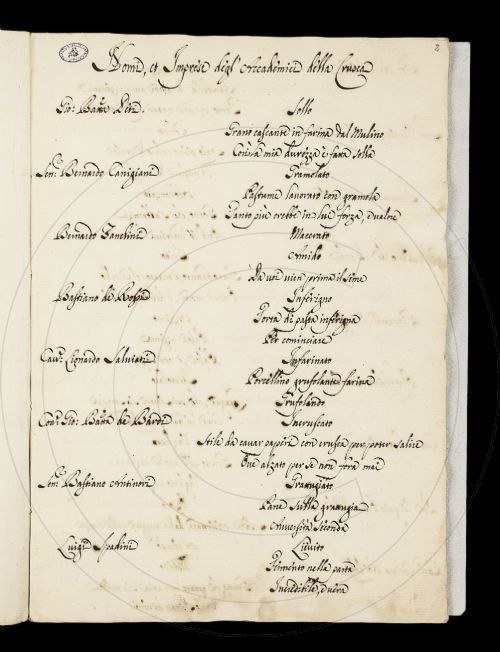 2
Nomi, et Imprese degl' Accademici della Crusca
Gio: Batta Deti. Sollo
Grano cascante in farina dal Mulino
Con la mia durezza è fatta solla
Sen.r Bernardo Canigiani Gramolato
Pastume lavorato con gramola
Tanto più crebbe in lui forza, e valore
Bernardo Zanchini Macerato
Amido
Da voi vien prima il seme
Bastiano de Rossi Inferigno
Torta di pasta inferigna
Per cominciare
Cav.r Lionardo Salviati Infarinato
Porcellino grufolante farina
Grufolando
Con.e Gio: Batta de Bardi Incruscato
Stile da cavar paperi con crusca per poter salire
Ove alzato per se non fora mai
Sen.r Bastiano Antinori Grattugiato
Pane sulla grattugia
Avversità seconda
Luigi Spadini Lievito
Fomento nella pasta